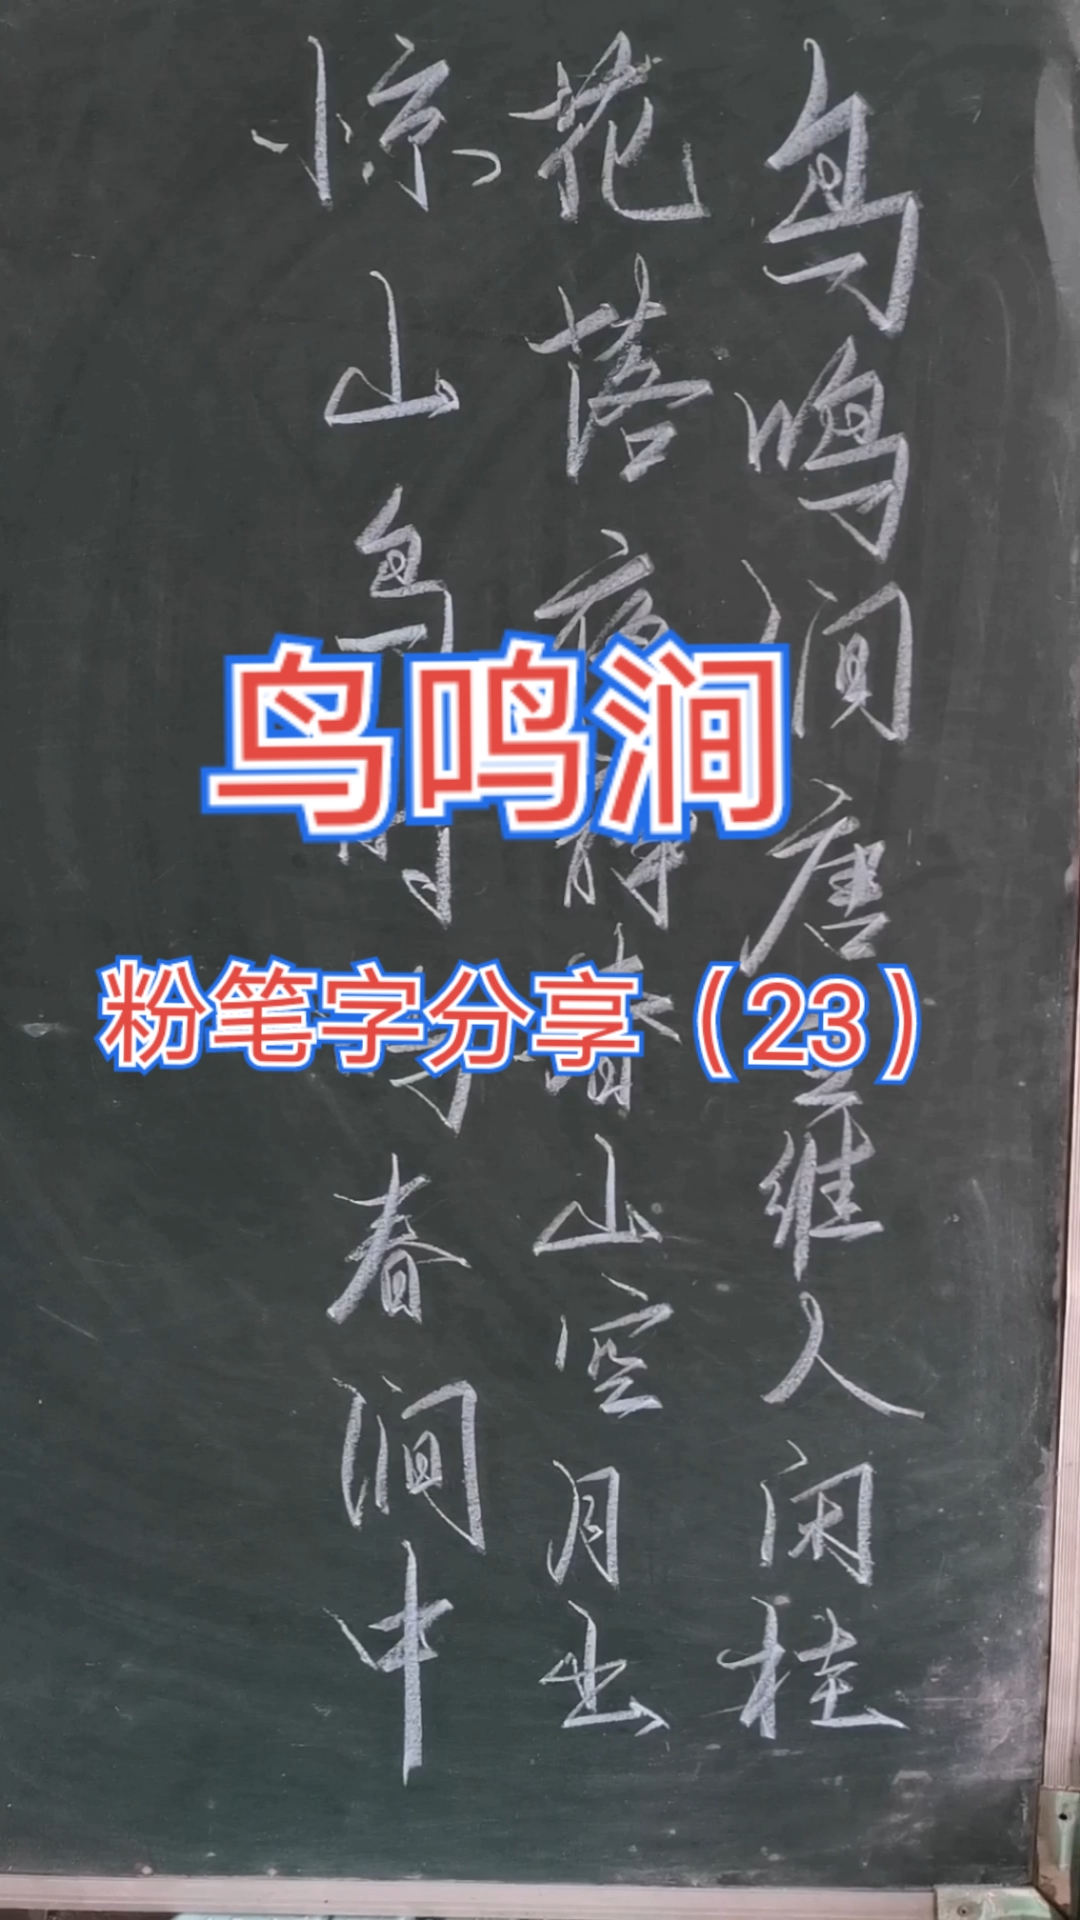 鸟鸣涧唐王维人闲桂
花落夜静春山空月出
惊山鸟时鸣春涧中
鸟鸣涧
粉笔字分享（23）